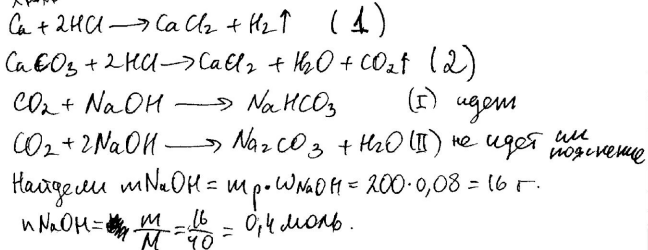 Ca + 2HCl ⟶ CaCl2 + H2↑ (1)
CaCO3 + 2HCl ⟶ CaCl2 + H2O + CO2↑ (2)
CO2 + NaOH ⟶ NaHCO3 (I) идет
CO2 + 2NaOH ⟶ Na2CO3 + H2O (II) не идет см пояснение
Найдем mNaOH = mр·ωNaOH = 200·0,08 = 16 г.
nNaOH = m/M = 16/40 = 0,4 моль.